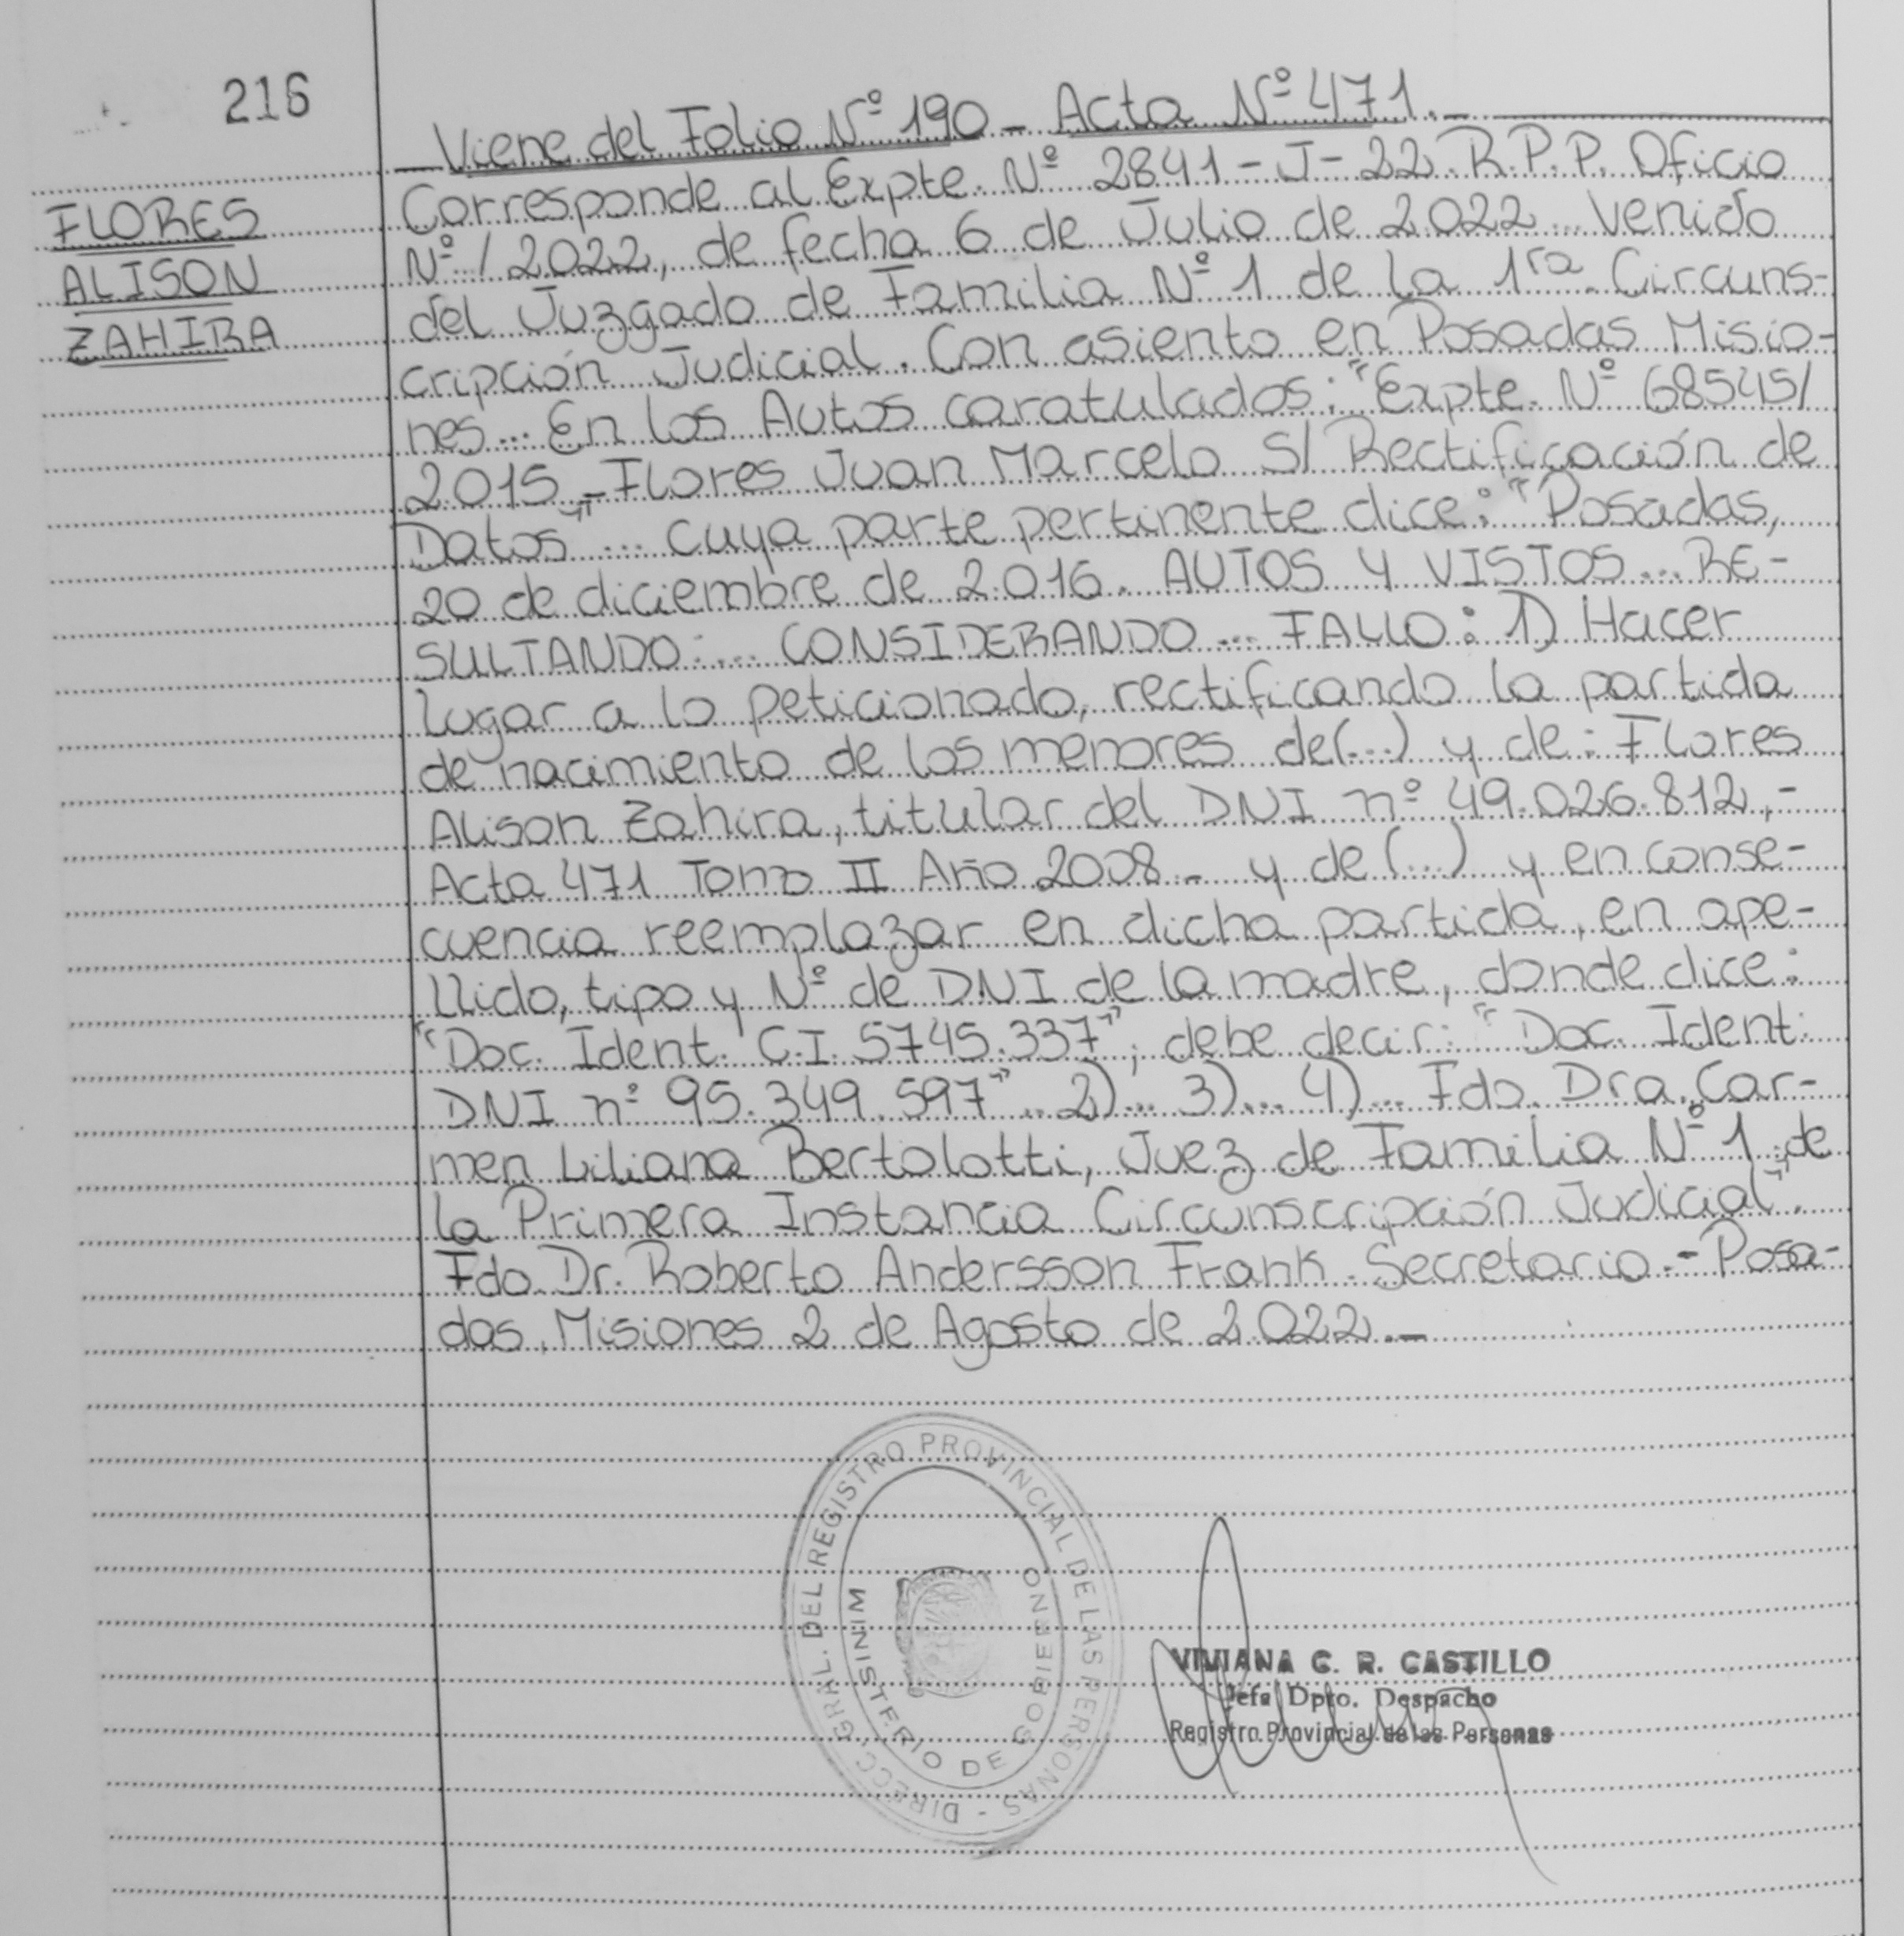 216
Viene del Folio Nº 190 - Acta Nº 471.-
FLORES
ALISON
ZAHIRA
Corresponde al Expte. Nº 2841 - J - 22. R.P.P. Oficio
Nº / 2022, de fecha 6 de Julio de 2022... Venido
del Juzgado de Familia Nº 1 de la 1ra. Circuns-
cripción Judicial. Con asiento en Posadas Misio-
nes... En los Autos caratulados: "Expte. Nº 68545/
2015 - Flores Juan Marcelo S/ Rectificación de
Datos"... Cuya parte pertinente dice: "Posadas,
20 de diciembre de 2016. AUTOS Y VISTOS... RE-
SULTANDO:... CONSIDERANDO... FALLO: 1) Hacer
lugar a lo peticionado, rectificando la partida
de nacimiento de los menores de(...) y de: Flores
Alison Zahira, titular del DNI nº 49.026.812,-
Acta 471 Tomo II Año 2008 - y de (...) y en conse-
cuencia reemplazar en dicha partida, en ape-
llido, tipo y Nº de DNI de la madre, donde dice:
"Doc. Ident. C.I. 5745.337", debe decir: "Doc. Ident:
DNI nº 95.349.597"... 2)... 3)... 4)... Fdo. Dra. Car-
men Liliana Bertolotti, Juez de Familia Nº 1 de
la Primera Instancia Circunscripción Judicial".
Fdo. Dr. Roberto Andersson Frank. Secretario.- Posa-
das, Misiones 2 de Agosto de 2022.-
DIRECC. GRAL. DEL REGISTRO PROVINCIAL DE LAS PERSONAS -
MINISTERIO DE GOBIERNO
VIVIANA C. R. CASTILLO
Jefa Dpto. Despacho
Registro Provincial de las Personas